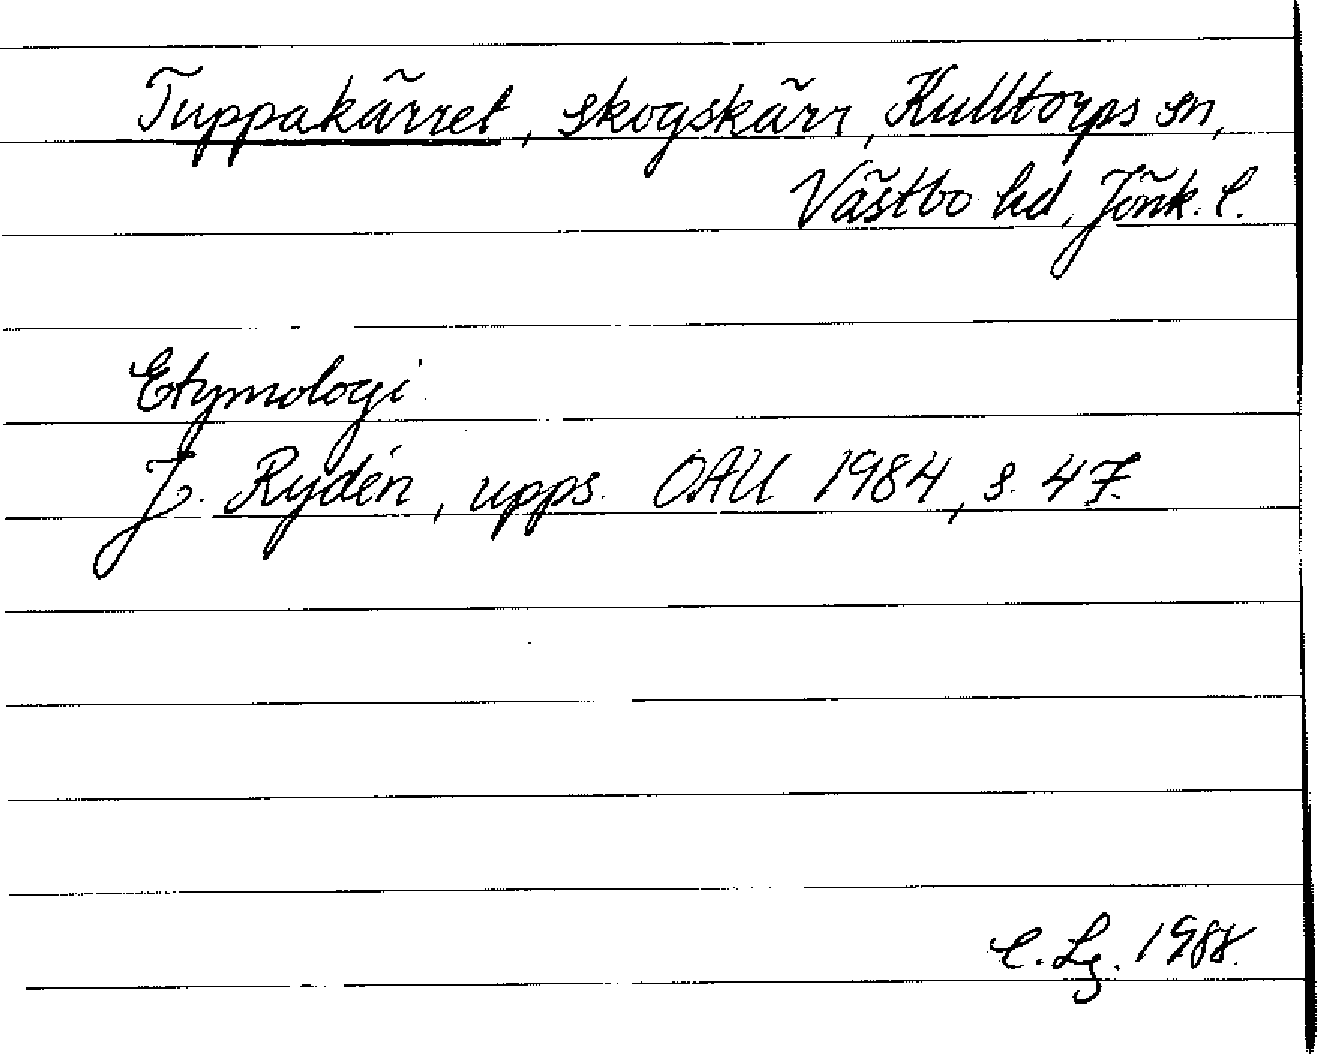 Tuppakärret, skogskärr, Kulltorps sn,
Västbo hd, Jönk. l.
Etymologi
J. Rydén, upps. OAU 1984, s. 47.
C. Lg. 1988.